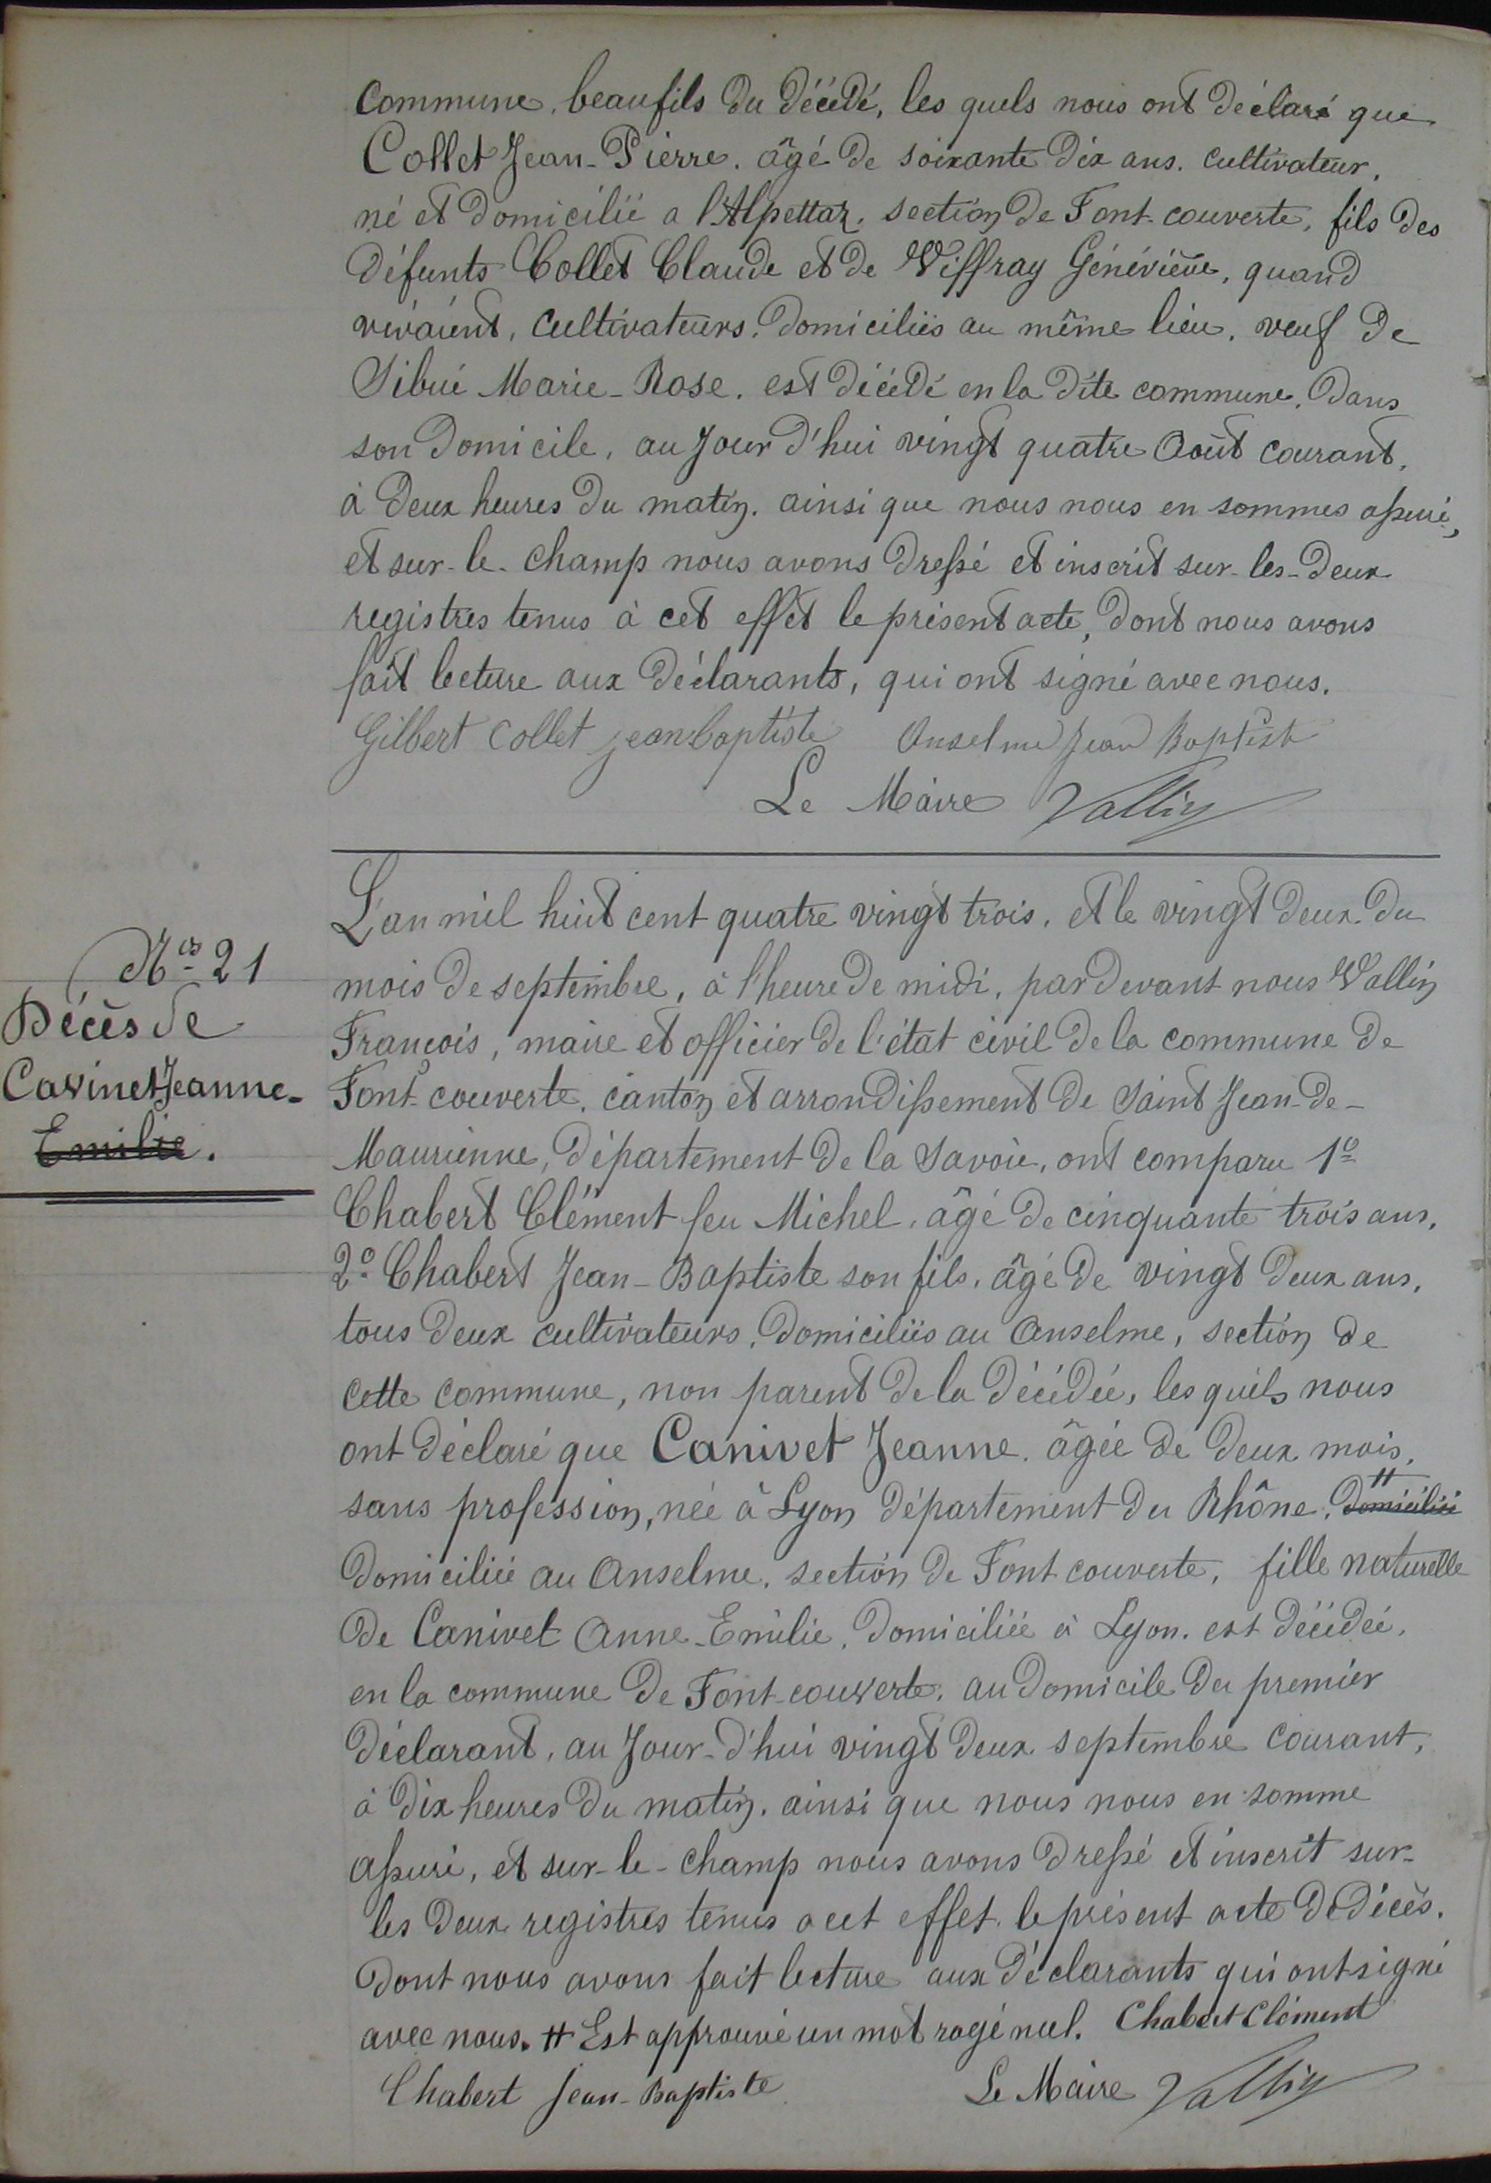 commune, beau fils du décédé, les quels nous ont déclaré que
Collet Jean-Pierre. âgé de soixante dix ans. cultivateur,
né et domicilié a l'Alpettaz, section de Font-couverte, fils des
défunts Collet Claude et de Viffray Généviève, quand
vivaient, cultivateurs, domiciliés au même lieu, veuf de
Sibué Marie-Rose. est décédé en la dite commune, dans
son domicile, au Jour d'hui vingt quatre Août courant,
à deux heures du matin. ainsi que nous nous en sommes assuré,
et sur-le-champ nous avons dressé et inscrit sur-les-deux
registres tenus à cet effet le présent acte, dont nous avons
fait lecture aux déclarants, qui ont signé avec nous.
Gilbert Collet jean baptiste Anselme Jean Baptiste
Le Maire Vallin
Nos 21
Décès de
Cavinet Jeanne-
Emilie.
L'an mil huit cent quatre vingt trois, et le vingt deux du
mois de septembre, à l'heure de midi, par devant nous Vallin
François, maire et officier de l'état civil de la commune de
Font-couverte, canton et arrondissement de Saint Jean-de-
Maurienne, département de la Savoie, ont comparu 1o
Chabert Clément feu Michel, âgé de cinquante trois ans,
2o Chabert Jean-Baptiste son fils, âgé de vingt deux ans,
tous deux cultivateurs, domiciliés au Anselme, section de
cette commune, non parent de la décédée, les quels nous
ont déclaré que Canivet Jeanne. âgée de deux mois,
sans profession, née à Lyon département du Rhône, # domiciliée
domiciliée au Anselme, section de Font couverte, fille naturelle
de Canivet Anne-Emilie, domiciliée à Lyon. est décédée,
en la commune de Font-couverte, au domicile du premier
déclarant, au Jour-d'hui vingt deux septembre courant,
à dix heures du matin. ainsi que nous nous en somme
assuré, et sur-le-champ nous avons dressé et inscrit sur-
les deux registres tenus a cet effet, le présent acte de décès,
dont nous avons fait lecture aux déclarants qui ont signé
avec nous. # Est approuvé un mot rayé nul. Chabert Clément
Chabert Jean-Baptiste Le Maire Vallin